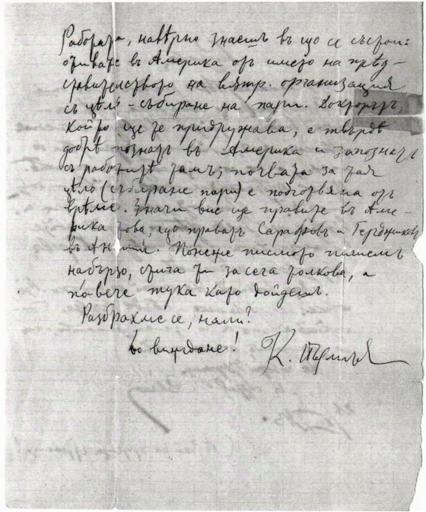 Работата, навѣрно знаешъ въ що се състои:
отиване въ Америка отъ името на пред-
ставителството на вѫтр. организация
съ цѣль – събиране на пари. Докторътъ,
който ще те придружава, е твърдѣ
добрѣ познатъ въ Америка и запознатъ
съ работитѣ тамъ; почвата за тая
цѣль (събиране пари) е подготвяна отъ
врѣме. Значи вие ще правите въ Аме-
рика това, що праватъ Сарафовъ и
въ Англия. Понеже писмото пишемъ
набързо, стига ти за сега толкова, а
повече тука като дойдешъ.
Разбрахме се, нали?
До виждане! К.